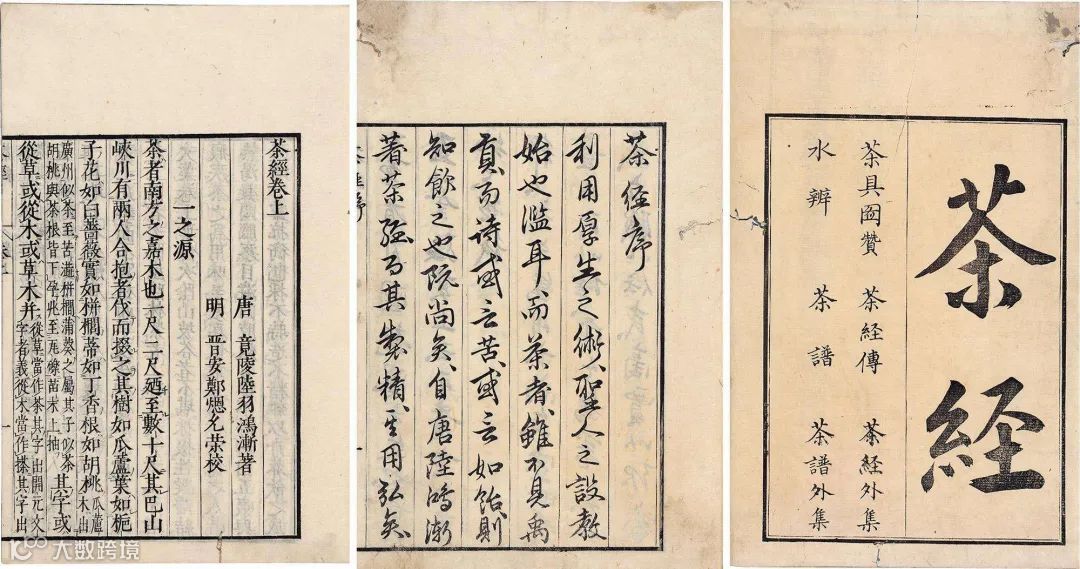 茶経
茶具圖贊 茶経傳 茶経外集
水辨 茶譜 茶譜外集
茶経序
利用厚生之術聖人之設教
始也濫耳而茶者雖不見禹
貢而诗或云苦或云如飴則
知飲之也既尚矣自唐陸鴻漸
著茶經而其製精其用弘矣
茶經卷上
唐 竟陵陸羽鴻漸著
明 晋安鄭熜允荣校
一之源
茶者南方之嘉木也一尺二尺廼至數十尺其巴山
峽川有兩人合抱者伐而掇之其樹如瓜蘆葉如栀
子花如白薔薇實如栟櫚蒂如丁香根如胡桃瓜蘆木出
廣州似茶至苦澁栟櫚蒲葵之屬其子似茶胡桃與茶根皆下孕兆至瓦礫苗木上抽其字或
從草或從木或草木并從草當作茶其字出開元文字者義從木當作搽其字出
大数跨境